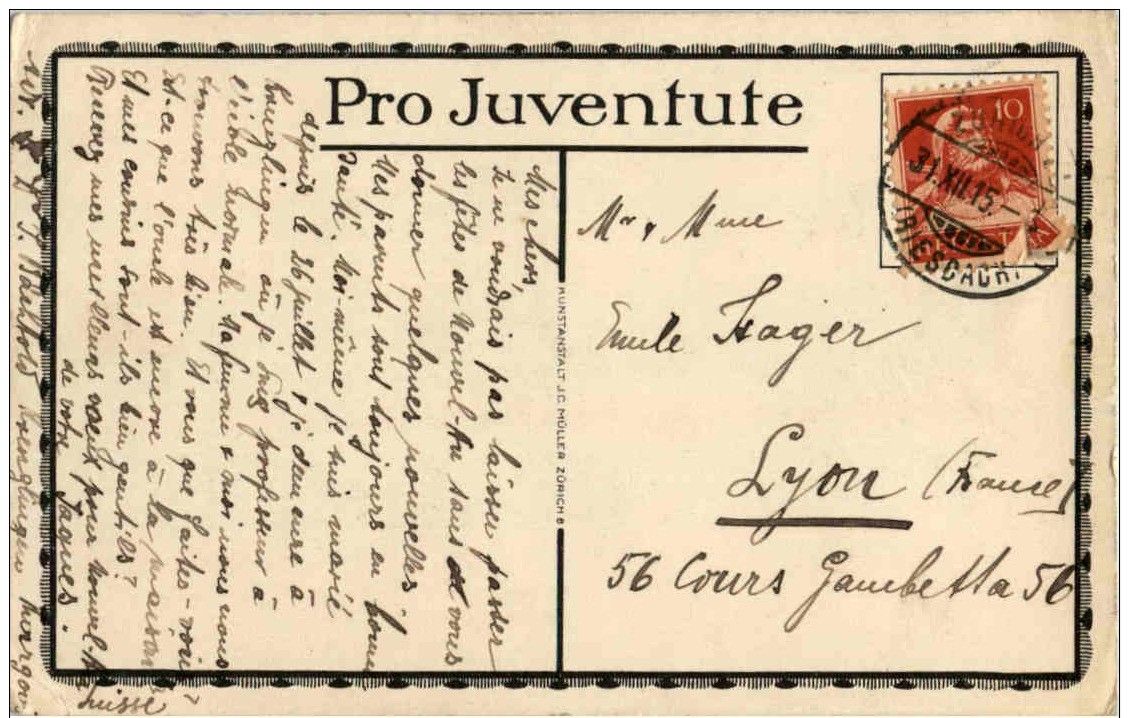 Pro Juventute
10
31.XII.15.-
(RIESBACH)
Mes chers,
Je ne voudrais pas laisser passer
les fêtes de Nouvel-An sans vous
donner quelques nouvelles
Mes parents sont toujours en bonne
santé. Moi-même je suis marié
depuis le 26 juillet & je demeure à
Kreuzlingen où je suis professeur à
l'école Normale. Ma femme & moi nous nous
trouvons très bien. Et vous que faites-vous?
Est-ce que l'oncle est encore à la maison
Et mes cousins sont-ils bien gentils?
Recevez mes meilleurs vœux pour Nouvel-An
de votre Jaques.
J. Bächtold Kreuzlingen Thurgovie
Suisse
KUNSTANSTALT J.C. MÜLLER ZÜRICH 8
Mr & Mme
Emile Hager
Lyon (France)
56 Cours Gambetta 56